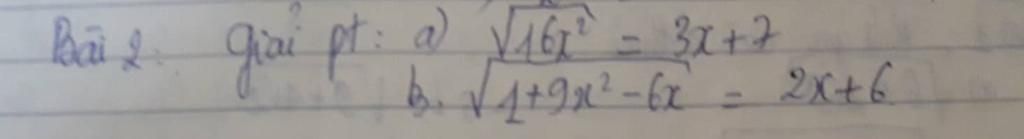 Bài 2. Giải pt: a) √16x² = 3x+7
b. √1+9x²-6x = 2x+6